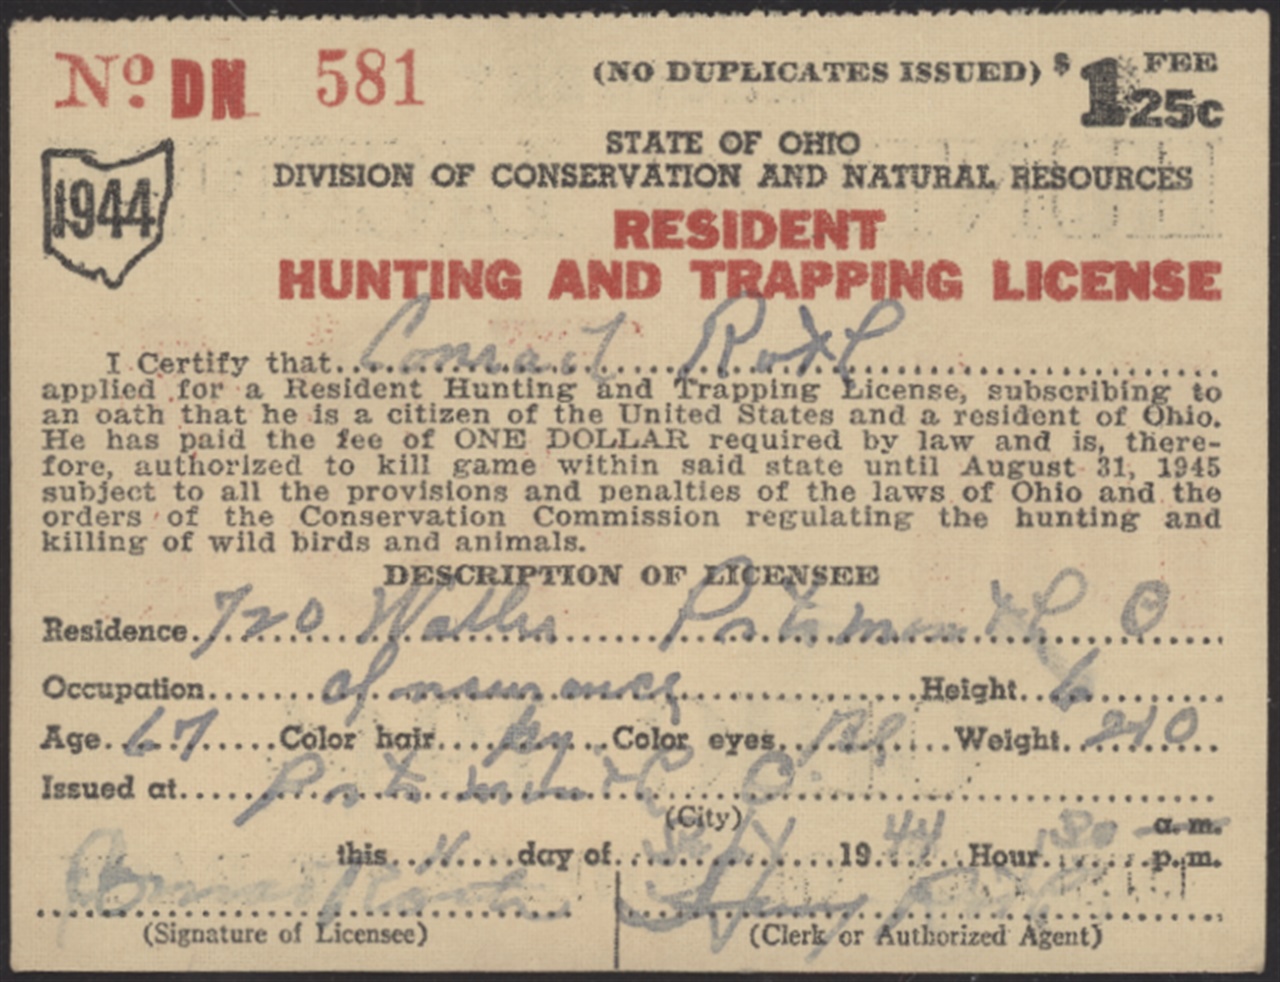 No. DN 581
(NO DUPLICATES ISSUED) $1 FEE 25c
1944
STATE OF OHIO
DIVISION OF CONSERVATION AND NATURAL RESOURCES
RESIDENT
HUNTING AND TRAPPING LICENSE
I Certify that Conrad
applied for a Resident Hunting and Trapping License, subscribing to
an oath that he is a citizen of the United States and a resident of Ohio.
He has paid the fee of ONE DOLLAR required by law and is, there-
fore, authorized to kill game within said state until August 31, 1945
subject to all the provisions and penalties of the laws of Ohio and the
orders of the Conservation Commission regulating the hunting and
killing of wild birds and animals.
DESCRIPTION OF LICENSEE
Residence 720 Portsmouth O
Occupation Insurance Height 6
Age 67 Color hair Color eyes Bl Weight 210
Issued at Portsmouth O
(City)
a.m.
this 11 day of Sept 1944 Hour 130 p.m.
(Signature of Licensee) (Clerk or Authorized Agent)